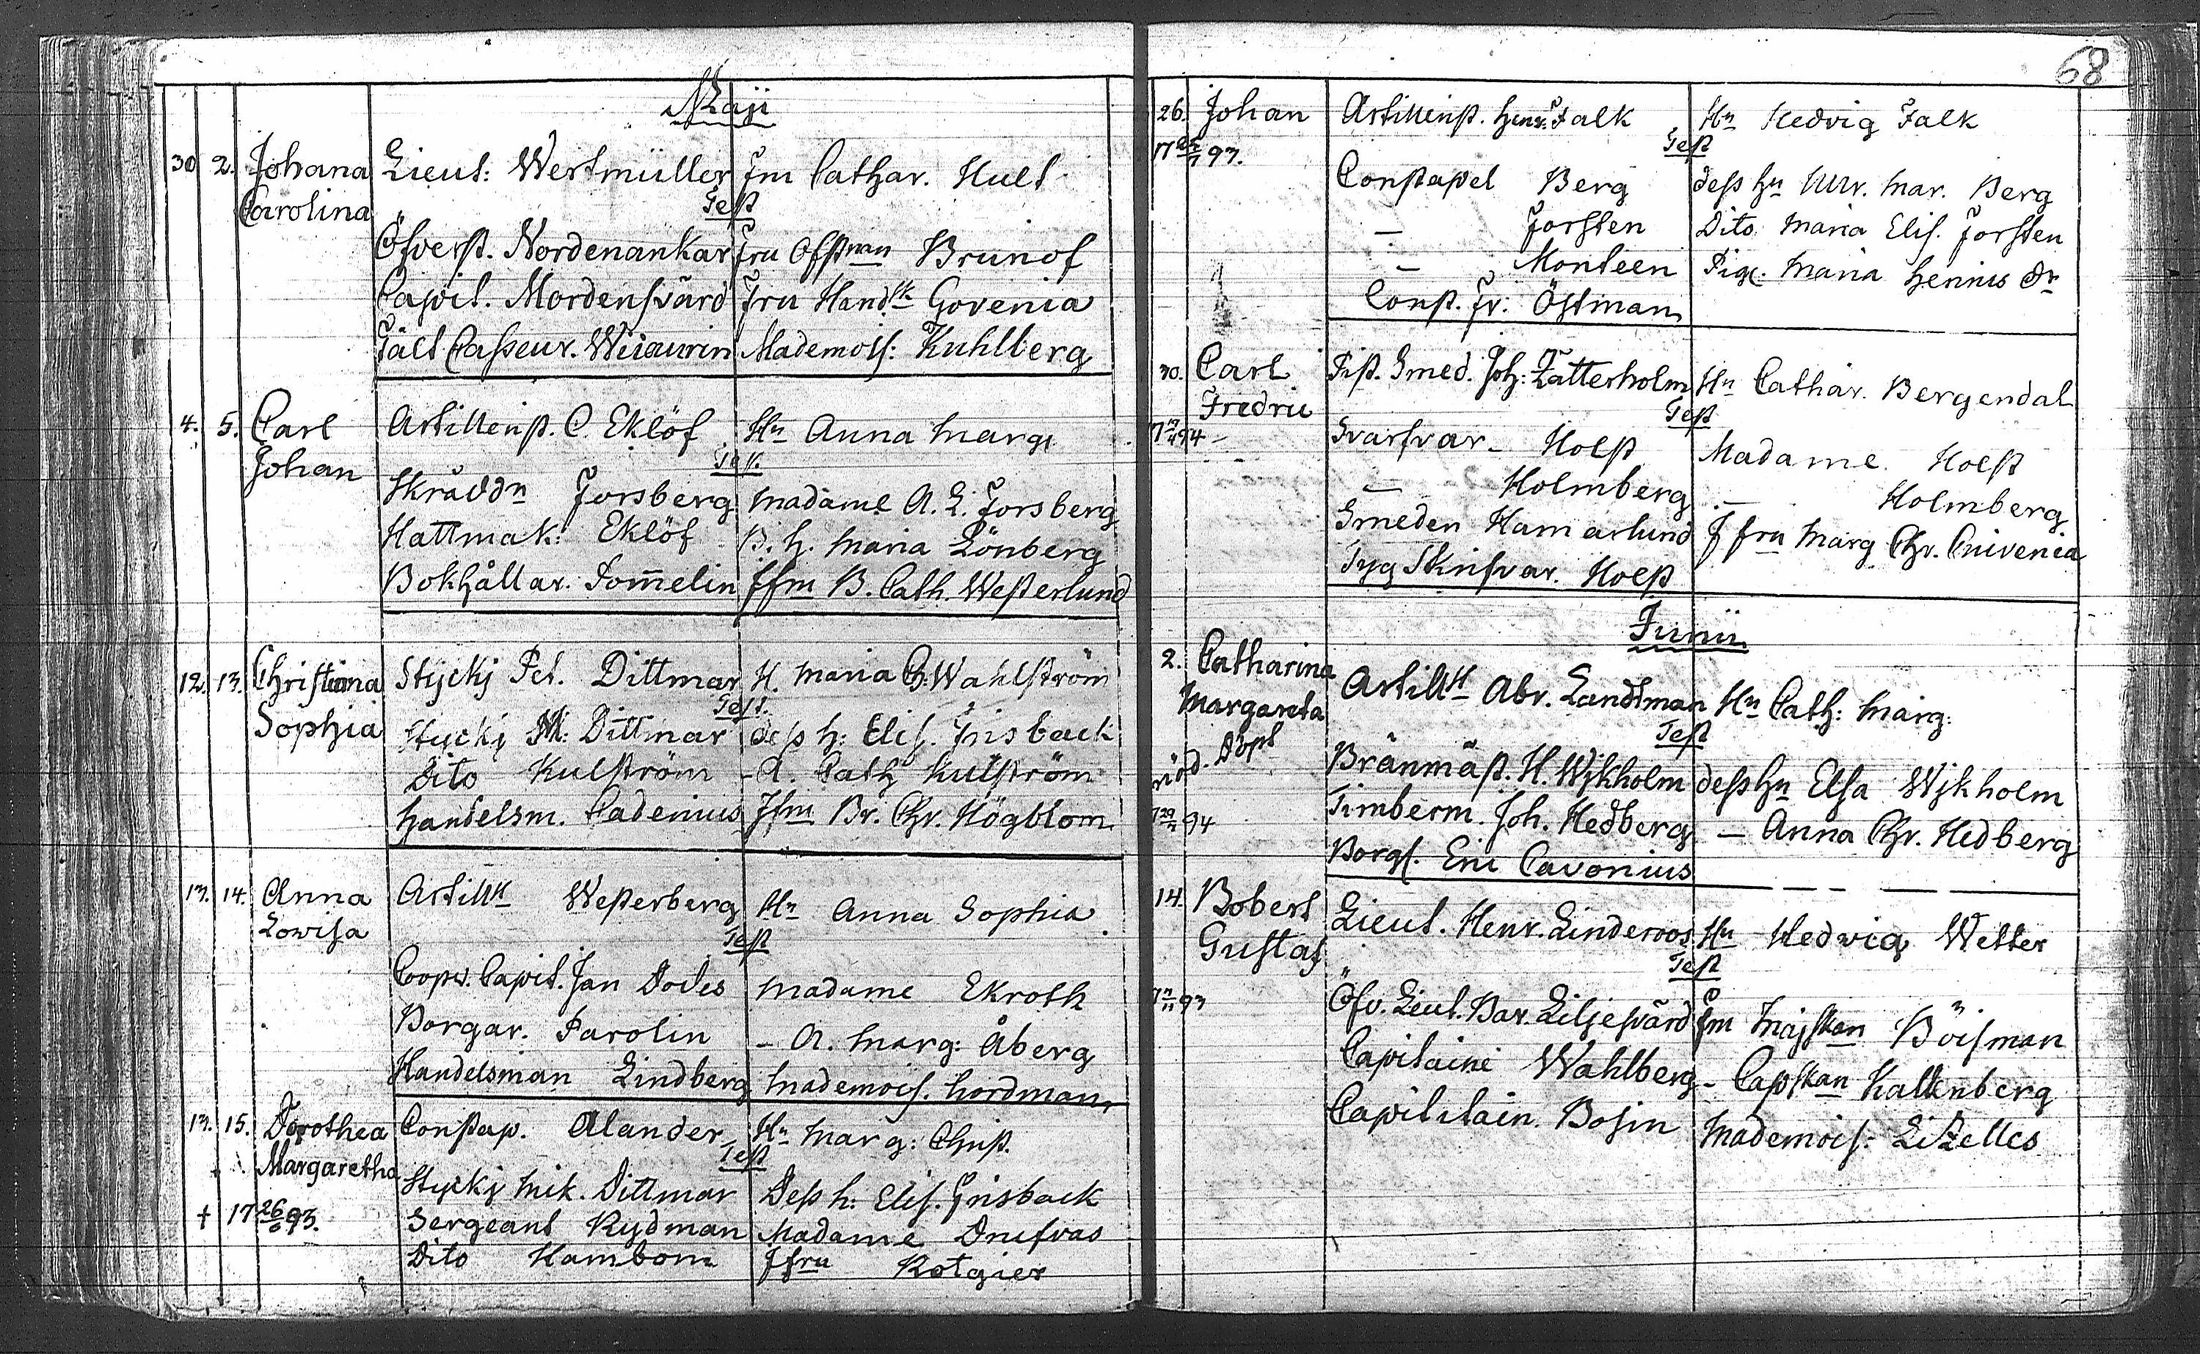 Maji
30 2. Johana Lieut: Wertmüller Fru Cathar. Hult
Carolina Test
Öfverst. Nordenankar Fru Ofstnan Brunof
Capit. Nordensvärd Fru Handsk Govenia
Fält Casseur. Mademois: Kuhlberg
4. 5. Carl Artillerist. C. Eklöf Hu Anna Marg.
Johan Test.
Skrädn Forsberg Madame A. L. Forsberg
Hattmak: Eklöf P. h. Maria Lönberg
Bokhållar. Tom̄elin Jfru B. Cath. Westerlund
12. 13. Christiana Styckj Pet. Dittmar H. Maria C. Wahlström
Sophia Test.
Styckj M. Dittmar dess h: Elis. Grisback
Dito Kulström - A. Cath Kulström
Handelsm. Cadenius Jfru Br. Chr. Högblom
13. 14. Anna Artillt Westerberg Hu Anna Sophia
Lovisa Test
Coopv. Capit. Jan Dodes Madame Ekroth
Borgar. Parolin - A. Marg: Åberg
Handelsman Lindberg Mademois. Nordman
13. 15. Dorothea Constap. Alander Hu Marg: Christ.
Margaretha Test
Styckj Mik. Dittmar Dess h: Elis. Grisback
† 17 26/6 93. Sergeant Rydman Madame Drufvas
Dito Hambom Jfru Rotgier
68
26. Johan Artillerist. Henr. Falk Hu Hedvig Falk
17 93. Test
Constapel Berg dess hu Ulr. Mar. Berg
— Forsten Dito Maria Elis. Forsten
— Monteen Pig. Maria Hennus dr
Const. Fr: Östman
30. Carl Pist. Smed. Joh: Zätterholm Hu Cathar. Bergendal
Fredric Test
17 94 Svarfvar - Holst Madame Holst
— Holmberg — Holmberg
Smeden Hamarlund Jfru Marg Chr. Cnivenia
Tyg Skrifvar. Holst
Junii
2. Catharina Artillt Abr. Landtman Hu Cath: Marg:
Margareta Test
nöd. Döpt Bränmäst. H. Wijkholm dess hu Elsa Wijkholm
17 94 Timberm. Joh. Hedberg — Anna Chr. Hedberg
Borgs. Eric Cavonius
14. Robert Lieut. Henr. Linderoos Hu Hedwig Wetter
Gustaf Test
17 93 Öfv. Lieut. Bar. Liljesvärd Fru Majskan Böisman
Capitaine Wahlberg - Capskan Kallenberg
Capititain. Bosin Mademois: Lizelles